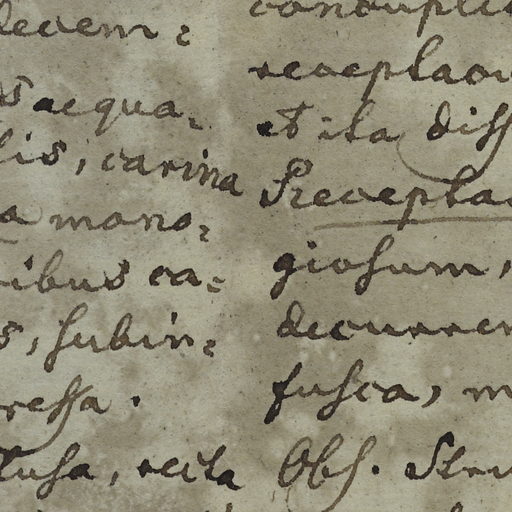 decem=
s aequa=
lis, carina
a mono=
ribus ca=
s, subin=
ressa.
lusa, recta
conduplic
receptacu
et ita diss
Receptac
giosum,
decurren
fusca, m
Obs. Stru